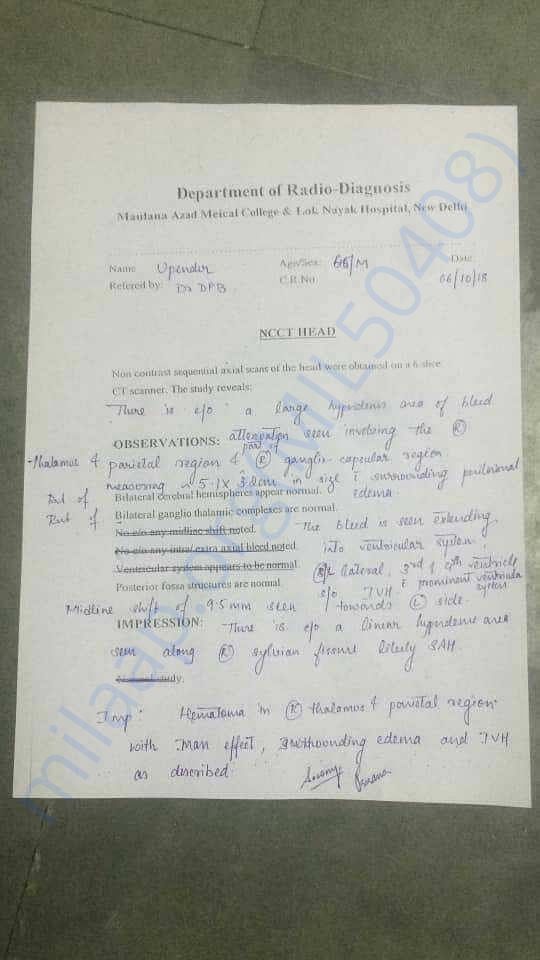 Department of Radio-Diagnosis
Maulana Azad Meical College & Lok Nayak Hospital, New Delhi
Name Upender Age/Sex: 66/M Date
Refered by: Dr DPB C.R.No 06/10/18
NCCT HEAD
Non contrast sequential axial scans of the head were obtained on a 6 slice
CT scanner. The study reveals:
There is e/o a large hyperdense area of bleed
OBSERVATIONS: attenuation seen involving the (R)
part of
Thalamus & parietal region & (R) ganglio-capsular region
measuring ~ 5.1 x 3.2cm in size c surrounding perilesional
edema
Rest of Bilateral cerebral hemispheres appear normal.
Rest of Bilateral ganglio thalamic complexes are normal.
No e/o any midline shift noted. The bleed is seen extending
No e/o any intra/ extra axial bleed noted. into ventricular system,
Ventricular system appears to be normal. B/L lateral, 3rd & 4th ventricle
Posterior fossa structures are normal s/o IVH c prominent ventricular
system
Midline shift of 9.5mm seen towards (L) side.
IMPRESSION: There is e/o a linear hyperdense area
seen along (R) sylvian fissure likely SAH.
Normal study.
Imp: Hematoma in (R) thalamus & parietal region
with mass effect, surrounding edema and IVH
as described
milaap.org (MIL50408)